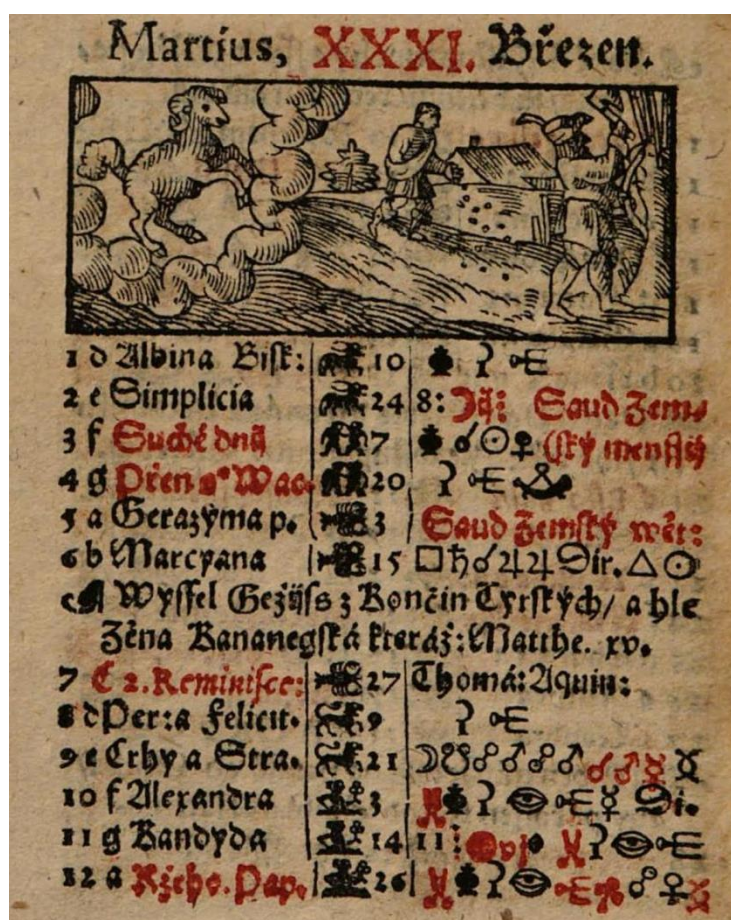 Martius, XXXI. Březen.
1 d Albina Bisk: 10
2 e Simplicia 24 8: Saud Zem-
3 f Suché dnij 7 ☌☉♀ (ský menssij
4 g Přen s° Wac. 20
5 a Gerazýma p. 3 Saud Zemský wět:
6 b Marcyana 15 □♄☌♃♃Dir.△☉
Wyssel Gežijss z Končin Tyrských/ a hle
Žěna Kananegská kteráž: Matthe. xv.
7 C 2. Reminisce: 27 Thomá: Aquin:
8 d Per: a Felicit. 9
9 e Crhy a Stra. 21 ☽☋☍♂☍♂☌♂☿☿
10 f Alexandra 3 ☿ Di.
11 g Kandyda 14 11:
12 a Ržeho. Pap. 26 ☍♀